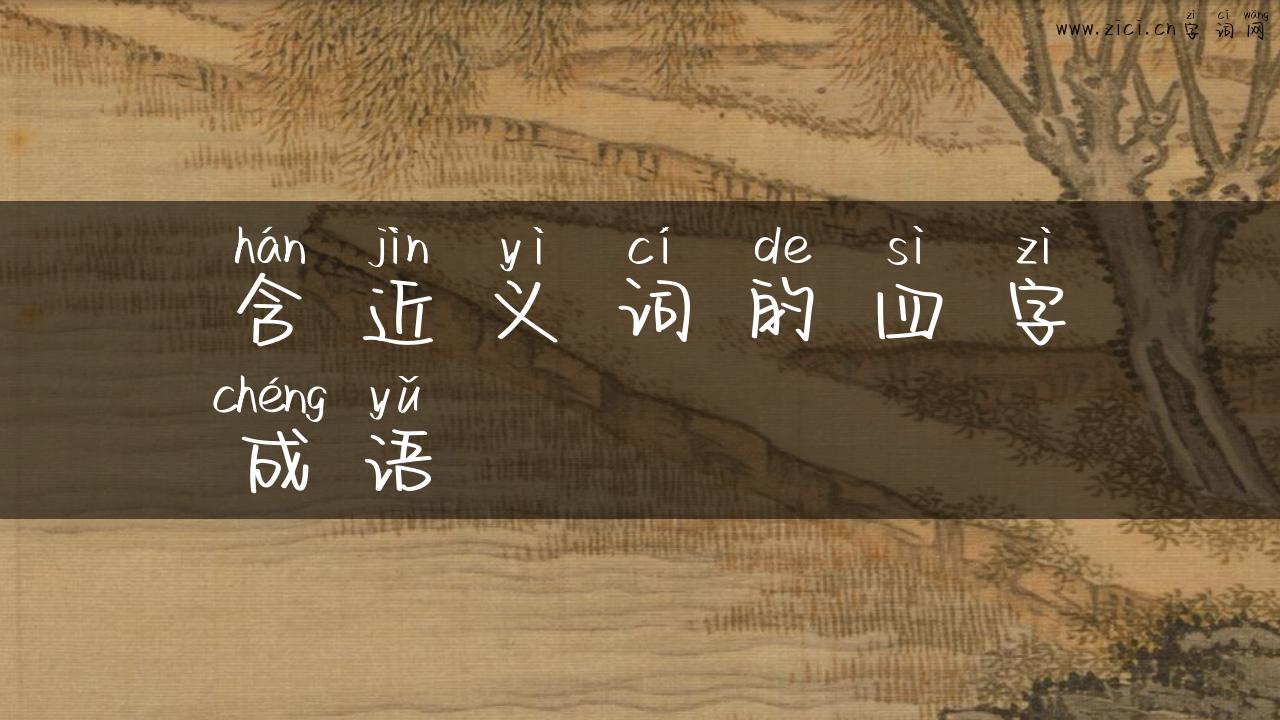 zì cí wǎng
www.zici.cn 字词网
hán jìn yì cí de sì zì
含近义词的四字
chéng yǔ
成语